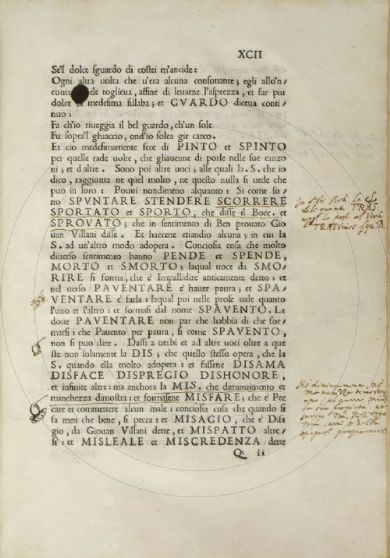 XCII
Se'l dolce sguardo di costei m'ancide:
Ogni altra uolta che u'era alcuna consonante; egli allo'n
contro de toglieua, affine di leuarne l'asprezza, et far piu
dolce la medesima sillaba; et GVARDO diceua conti
nuo:
Fa ch'io riueggia il bel guardo, ch'un sole
Fu sopra'l ghiaccio, ond'io solea gir carco.
Et cio medesimamente fece di PINTO et SPINTO
per quelle rade uolte, che gliauenne di porle nelle sue canzo
ni; et d'altre. Sono poi altre uoci; alle quali la. S. che io
dico, raggiunta ne quel molto, ne questo nulla si uede che
puo in loro: Poteui nondimeno alquanto: Si come so/
no SPVNTARE STENDERE SCORRERE
SPORTATO et SPORTO, che disse il Bocc. et
SPROVATO; che in sentimento di Ben prouato Gio
uan Villani disse. Et haccene etiandio alcuna; in cui la
S. ad un'altro modo adopera. Conciosia cosa che molto
diuerso sentimento hanno PENDE et SPENDE,
MORTO et SMORTO; laqual uoce da SMO,
RIRE si forma, che è Impallidire anticamente detto: et
nel uerso PAVENTARE è hauer paura; et SPA
VENTARE è farla: laqual poi nelle prose uale quanto
l'uno et l'altro: et formasi dal nome SPAVENTO. La
doue PAVENTARE non par che habbia di che for/
marsi: che Pauento per paura, si come SPAVENTO,
non si puo dire. Dassi a uerbi et ad altre uoci oltre a que
ste non solamente la DIS; che quello stesso opera, che la
S. quando ella molto adopera: et fassene DISAMA
DISFACE DISPREGIO DISHONORE,
et infinite altre: ma anchora la MIS. che diminuimento et
manchezza dimostra: et formasene MISFARE; che è Pec
care et commettere alcun male: conciosia cosa che quando si
fa men che bene, si pecca: et MISAGIO, che è Disa
gio, da Giouan Villani dette, et MISPATTO altre
si: et MISLEALE et MISCREDENZA dette
Q ii